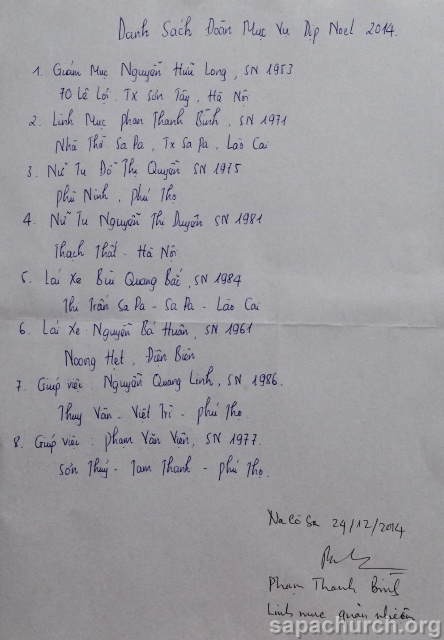 Danh Sách Đoàn Mục Vụ Dịp Noel 2014.
1. Giám Mục Nguyễn Hữu Long, SN 1953
70 Lê Lợi, Tx Sơn Tây, Hà Nội
2. Linh Mục Phan Thanh Bình, SN 1971
Nhà Thờ Sa Pa, Tx Sa Pa, Lào Cai
3. Nữ Tu Đỗ Thị Quyền SN 1975
Phù Ninh, Phú Thọ
4. Nữ Tu Nguyễn Thị Duyên SN 1981
Thạch Thất - Hà Nội
5. Lái Xe Bùi Quang Bắc, SN 1984
Thị Trấn Sa Pa - Sa Pa - Lào Cai
6. Lái Xe Nguyễn Bá Huân, SN 1961
Noong Hẹt, Điện Biên
7. Giúp việc: Nguyễn Quang Linh, SN 1986.
Thụy Vân - Việt Trì - Phú Thọ.
8. Giúp việc: Phạm Văn Viên, SN 1977.
Sơn Thuỷ - Tam Thanh - Phú Thọ.
Na Cô Sa 24/12/2014
Phạm Thanh Bình
Linh mục quản nhiệm
sapachurch.org